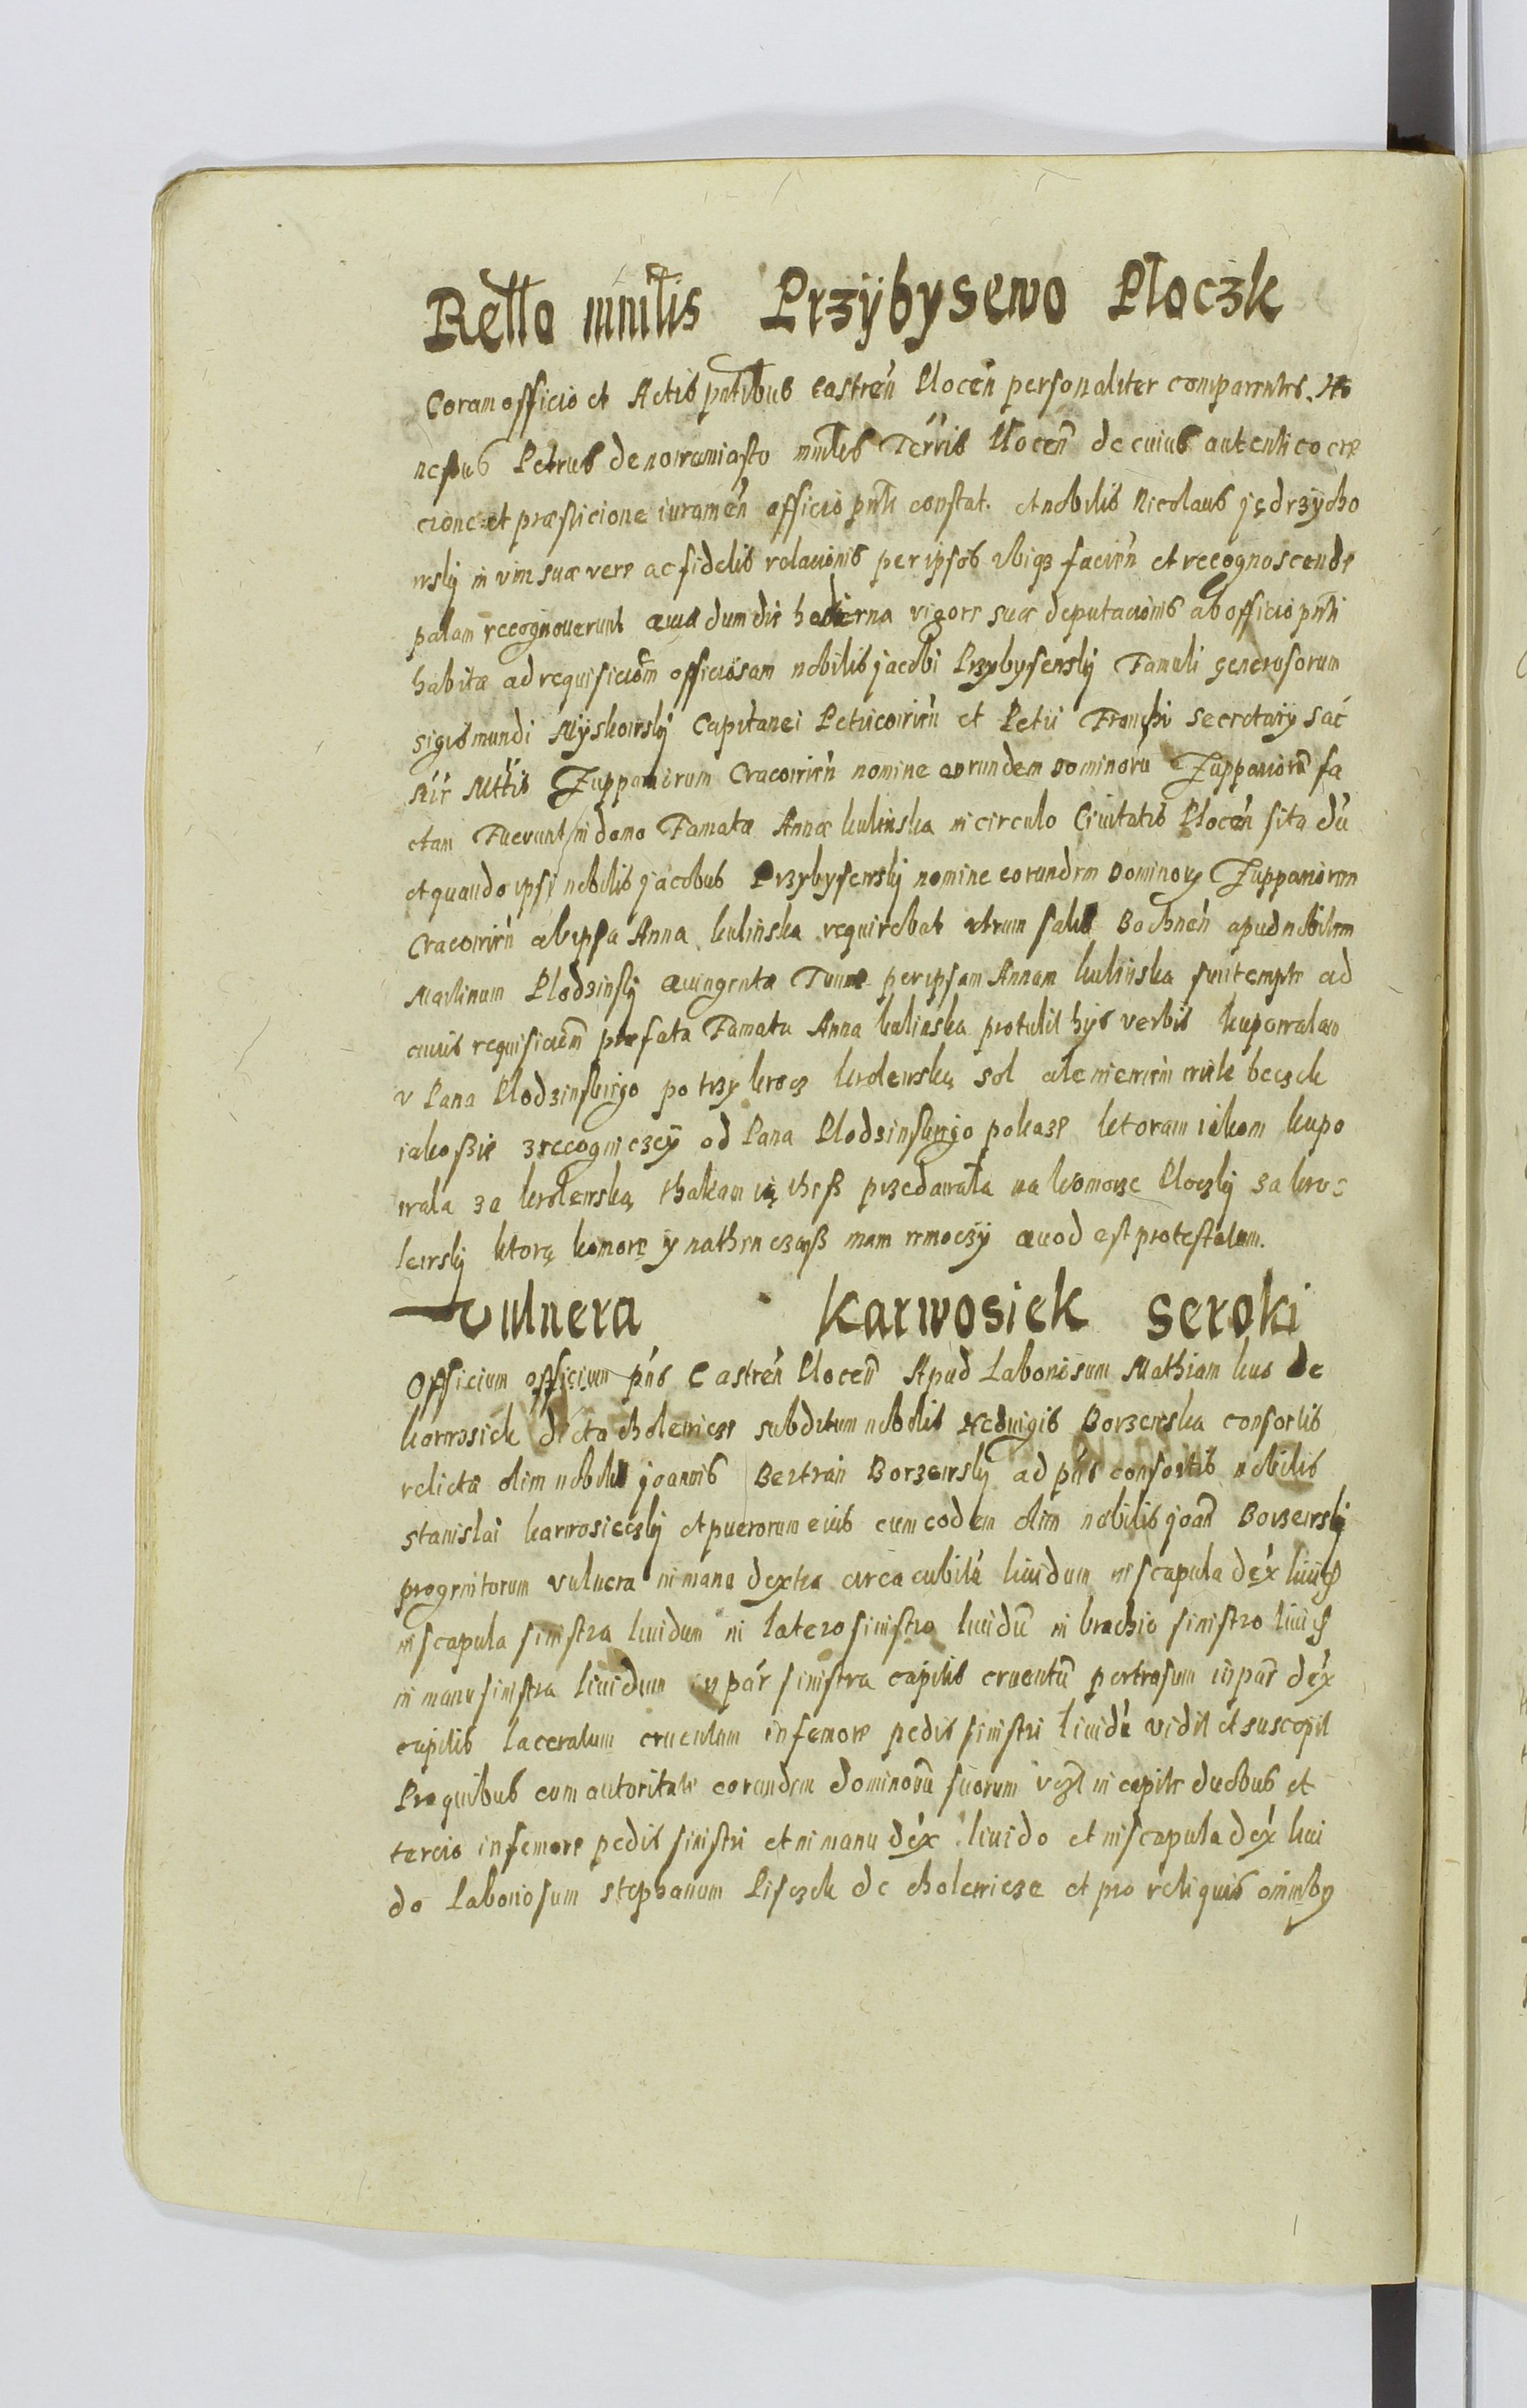 Rello mnilis Przÿbysewo Płoczk
Coram officio et Actis pntibus Castren̄ Plocen̄ personaliter comparentes. Ho
nestus Petrus de nowemiasto mnlis Terris Plocen̄ de cuius autentico cre
cione et præsticione iuramen̄ officio pnti constat. et nobilis Nicolaus jędrzÿcho
wsky in vim suæ veræ ac fidelis relacionis per ipsos vbiq3 facien̄ et recognoscendæ
palam recognouerunt quia dum die hodierna vigore suæ deputacionis ab officio pnti
habitæ ad requisiciom officiosam nobilis jacobi Przybysewsky Famuli generosorum
sigismundi Myskowsky Capitanei Petricowien̄ et Petri Franchi Secretary sac
Mttis Zuppariorum Cracowien̄ nomine eorundem dominorū Zupparior̄ fa
ctam Fuerunt in domo Famatæ Annæ kulinska in circulo Ciuitatis Plocen̄ sita dū
et quando ipse nobilis jacobus Przybysewsky nomine eorundem Dominor̄ Zuppariorum
Cracowien̄ ab ipsa Anna kulinska requirebat vtrum salis Bochnen̄ apud nobilem
Martinum Plodzinsky quingentæ Tunnæ per ipsam Annam kulinska sunt emptæ ad
cuius requisiciem præfata Famata Anna kulinska protulit hys verbis kupowalam
v Pana Plodzinskiego po trzy krocz krolewską sol ale niewiem wiele beczek
iako sie z recogniczÿ od Pana Plodzinskiego pokaze ktoram iakom kupo
wala za krolewską thakam ią theß przedawała na komorze Ploczky za kro
lewsky ktorą komorę ÿ nathen czaß mam w moczÿ quod est protestatum.
Vulnera Karwosiek Seroki
Officium officium pn̄s Castren̄ Plocen̄ Apud Laboriosum Mathiam kus de
karwosiek dicta cholewicze subditum nobilis Hedwigis Borzewska consortis
relictæ olim nobilis joannis Bertran Borzewsky ad pn̄s consortis nobilis
stanislai karwosieczky et puerorum eius cum eodem olim nobilis joan̄ Borzewsky
progenitorum vulnera in manu dextra circa cubitū liuidum in scapula dex̄ liuid
in scapula sinistra liuidum in latere sinistro liuidū in brachio sinistro liuid
in manu sinistra liuidum in par̄ sinistra capitis cruentū pertrosum in par̄ dex̄
capitis laceratum cruentum in femore pedis sinistri liuidū vidit et suscepit
Pro quibus cum autoritate eorundem dominorū suorum vczt in capite duobus et
tercio in femore pedis sinistri et in manu dex̄ liuido et in scapula dex̄ liui
do Laboriosum stephanum Piseczk de cholewicze et pro reliquis omnibɡ